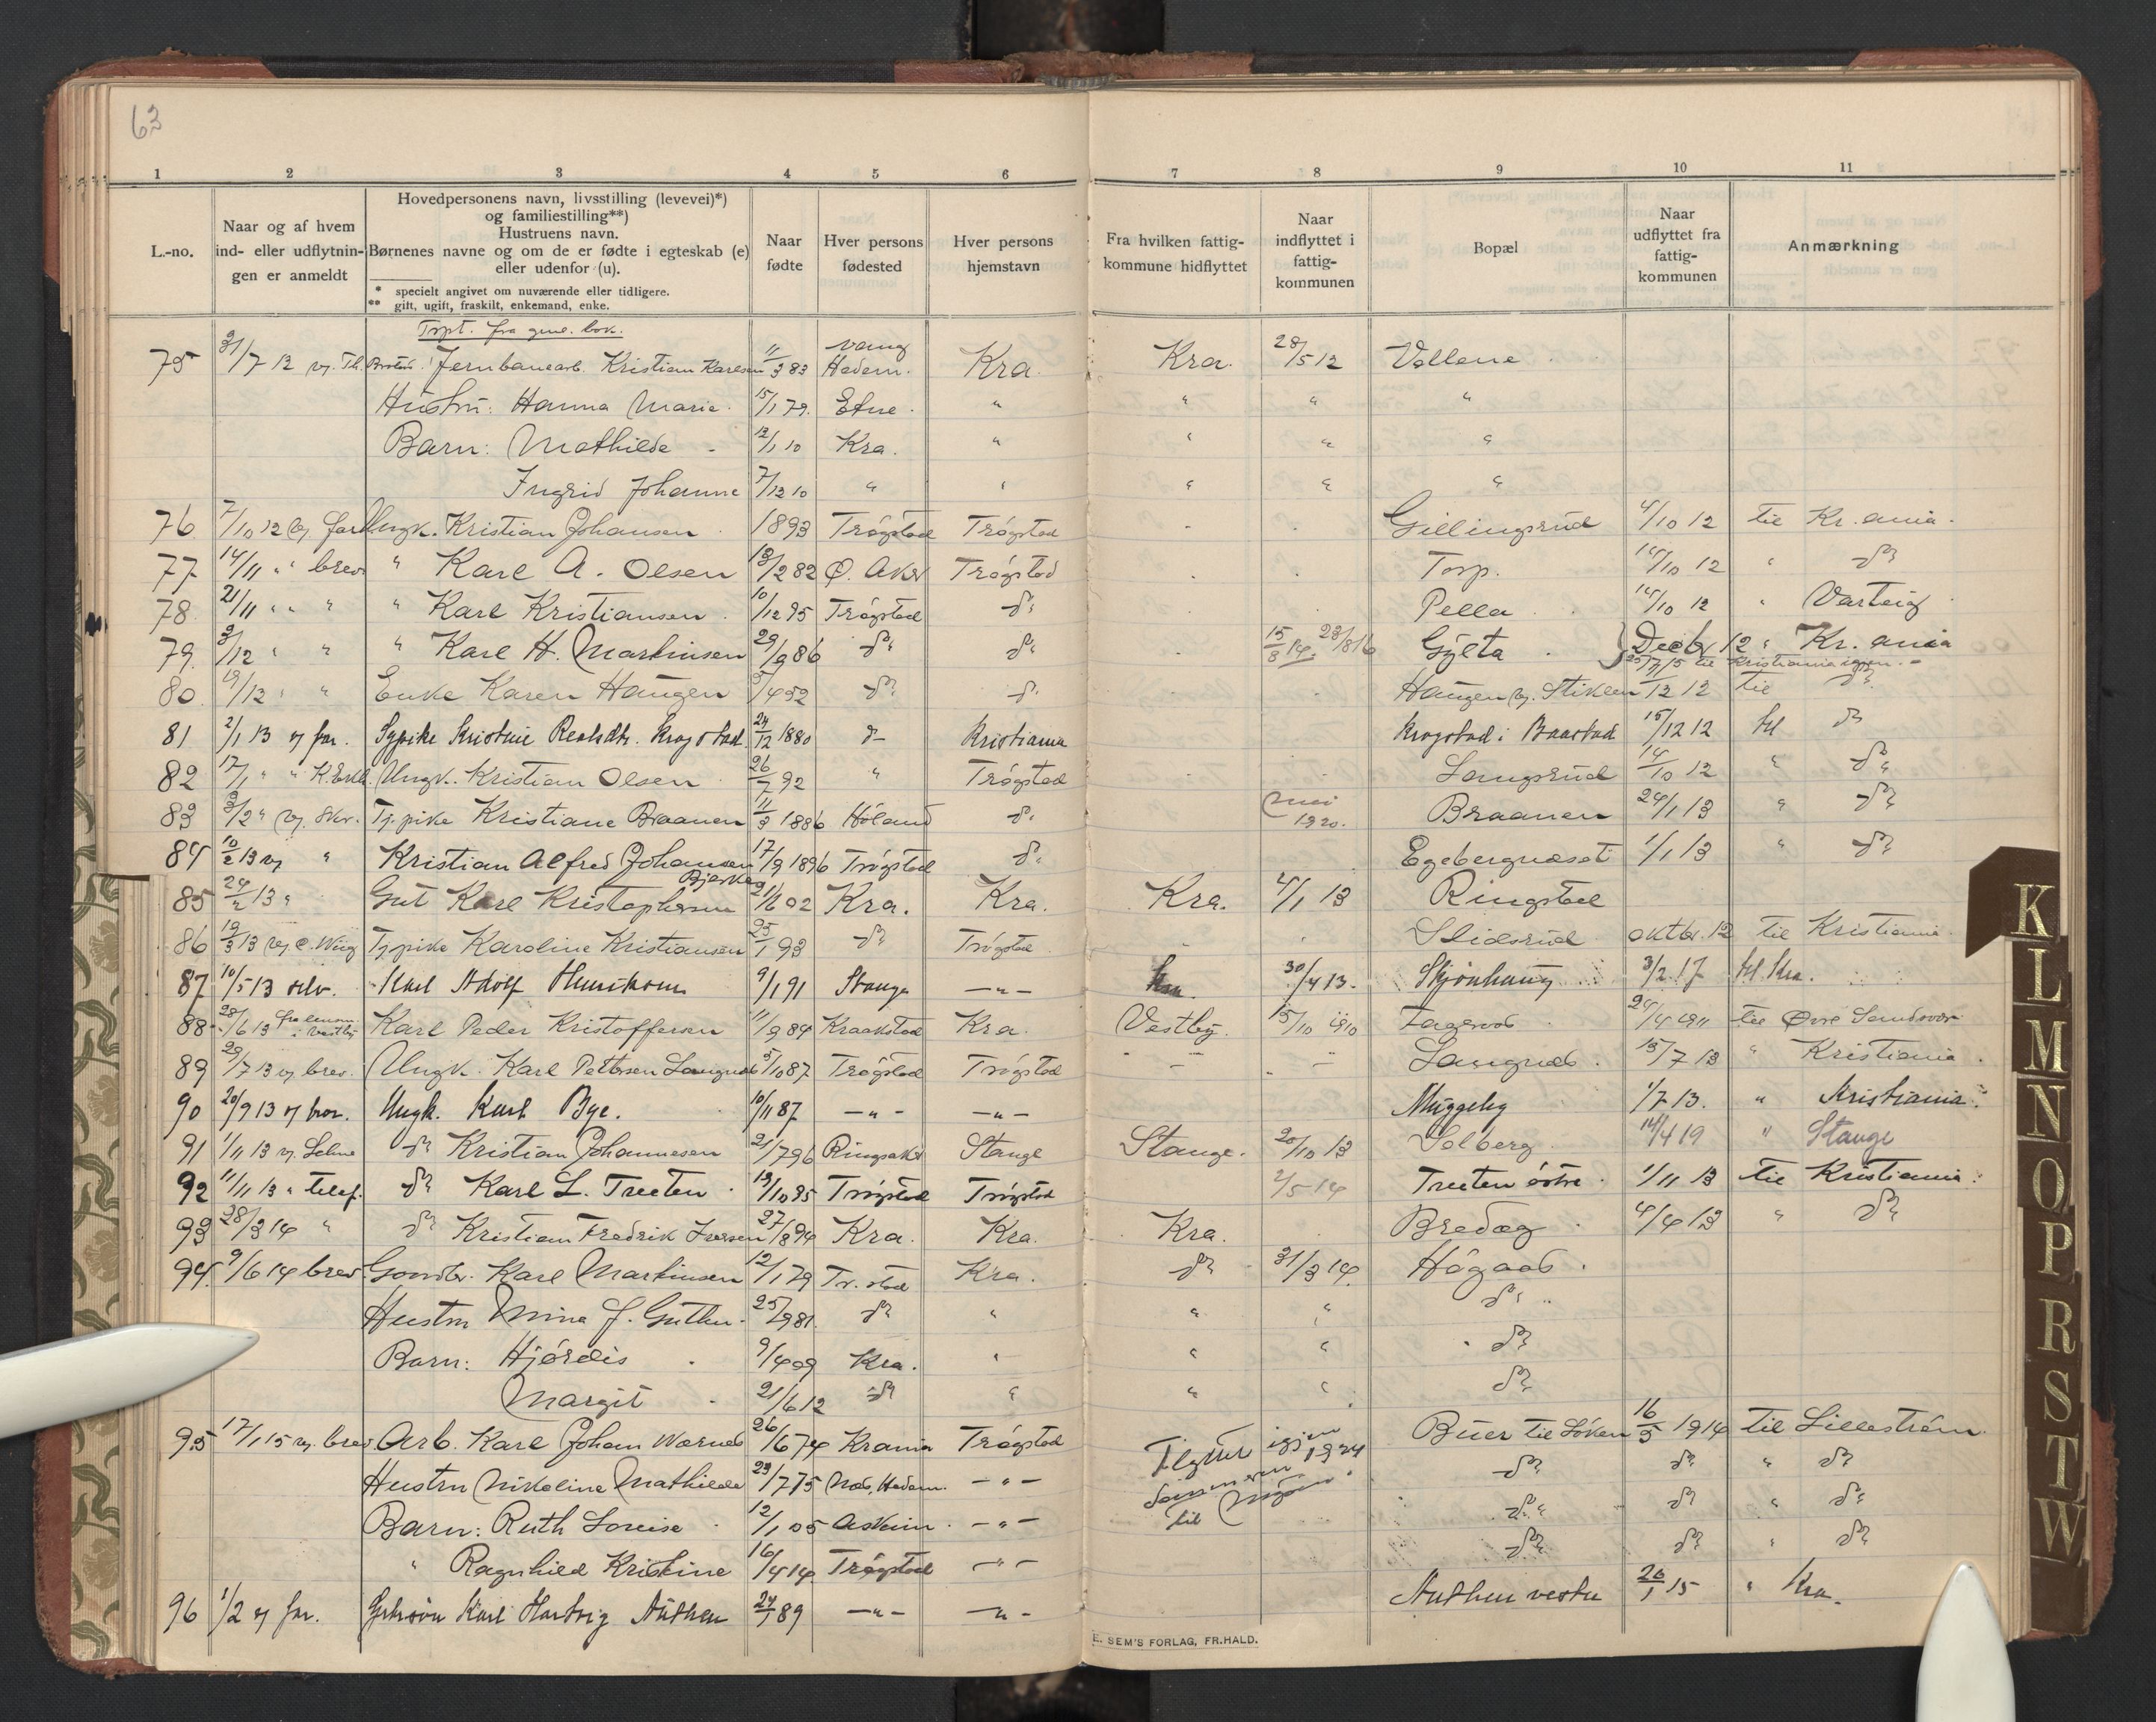 63
1 2 3 4 5 6 7 8 9 10 11
L.-no.
Naar og af hvem
ind- eller udflytnin-
gen er anmeldt
Hovedpersonens navn, livsstilling (levevei)*)
og familiestilling**)
Hustruens navn.
Børnenes navne og om de er fødte i egteskab (e)
eller udenfor (u).
* specielt angivet om nuværende eller tidligere.
** gift, ugift, fraskilt, enkemand, enke.
Naar
fødte
Hver persons
fødested
Hver persons
hjemstavn
Fra hvilken fattig-
kommune hidflyttet
Naar
indflyttet i
fattig-
kommunen
Bopæl
Naar
udflyttet fra
fattig-
kommunen
Anmærkning
fra bok.
75 31/7 12 Jernbanearb. Kristian Karlsen 11/3 83 Vang Hedem. Kra. Kra. 28/5 12 Vollene
Hustru: Hanna Marie 15/1 79 Etne " " " "
Barn: Mathilde 12/1 10 Kra. " " " "
Ingrid Johanne 7/12 10 " " " " "
76 7/10 12 Ungk. Kristian Johansen 1893 Trøgstad Trøgstad Gillingsrud 4/10 12 til Kr.ania
77 14/11 " " brev " Karl A. Olsen 13/2 82 Ø. Aker Trøgstad Torp. 14/10 12 " do
78 21/11 " " " " Karl Kristiansen 10/12 95 Trøgstad do Pella 14/10 12 " Varteig
79 3/12 " " " Karl H. Martinsen 29/9 86 do do 15/8 14. 28/8 16 Gylta Decbr 12 " Kr.ania
25/7 15 til Kristiania igjen.
80 19/12 " " Enke Karen Haugen 5/4 52 do do Haugen v. Stiklen /12 12 til do
81 2/1 13 v far. Sypike Kristine Krogstad 24/12 1880 do Kristiania Krogstad i Baastad 15/12 12 til do
82 17/1 " " Ungk. Kristian Olsen 26/7 92 " Trøgstad Langsrud 14/10 12 " do
83 3/2 " v. Skr. Tj.pike Kristiane Braanen 11/3 1886 Høland do Mai 1920. Braanen 24/1 13 " do
84 10/2 13 v " Kristian Alfred Johansen 17/9 1896 Trøgstad do Egebergnæset 1/1 13 " do
85 24/2 13 " Gut Karl Kristophersen Bjerke 21/6 02 Kra. Kra. Kra. 4/1 13 Ringstad
86 19/3 13 Tj.pike Karoline Kristiansen 25/1 93 do Trøgstad Slidsrud oktbr. 12 til Kristiania
87 10/5 13 selv. Karl Adolf Henriksen 9/1 91 Stange —"— Kra. 30/4 13. Skjønhaug 3/2 17 til Kra.
88 28/6 13 Karl Peder Kristoffersen 11/9 84 Kraakstad Kra. Vestby. 15/10 1910 24/4 1911 til Øvre Sandsvær
89 29/7 13 v brev. Ungk. Karl Pettersen Langnæs 5/10 87 Trøgstad Trøgstad Langnæs 15/7 13 " Kristiania
90 20/9 13 v bror. Ungk. Karl Bye. 10/11 87 —"— —"— Muggeby 1/7 13. " Kristiania
91 1/11 13 v. do Kristian Johannesen 21/7 96 Ringsaker Stange Stange. 20/10 13 Solberg 14/4 19 " Stange
92 11/11 13 " telef. do Karl L. Treten 13/10 95 Trøgstad Trøgstad 2/5 14 Treten østre 1/11 13 til Kristiania
93 28/3 14 " do Kristian Fredrik Iversen 27/8 94 Kra. Kra. Kra. Bredæg 4/4 13 " do
94. 9/6 14 brev Gaardbr. Karl Martinsen 12/1 79 Tr.stad Kra. do 31/3 14. Høgaas
Hustru Mina J. 25/2 81. do " " " do
Barn: Hjørdis 9/4 09 Kra. " " " do
Margit 21/6 12 do " " " do
95 17/1 15 v. brev Arb. Karl Johan Wærnes 26/6 74 Krania Trøgstad Buer til Løken 16/5 1914 til Lillestrøm
Hustru Nikoline Mathilde 23/7 75 Næs, Hedem. —"— do do " do
Barn: Ruth Lovise 12/1 05 Askim —"— do do " do
" Ragnhild Kristine 16/4 14 Trøgstad —"— do do " do
igjen 1924
til
96 1/2 v far. Karl Hartvig Authen 24/1 89 —"— —"— Authen vestre 20/1 15 " Kra.
E. SEM'S FORLAG, FR.HALD.
K
L
M
N
O
P
R
S
T
W